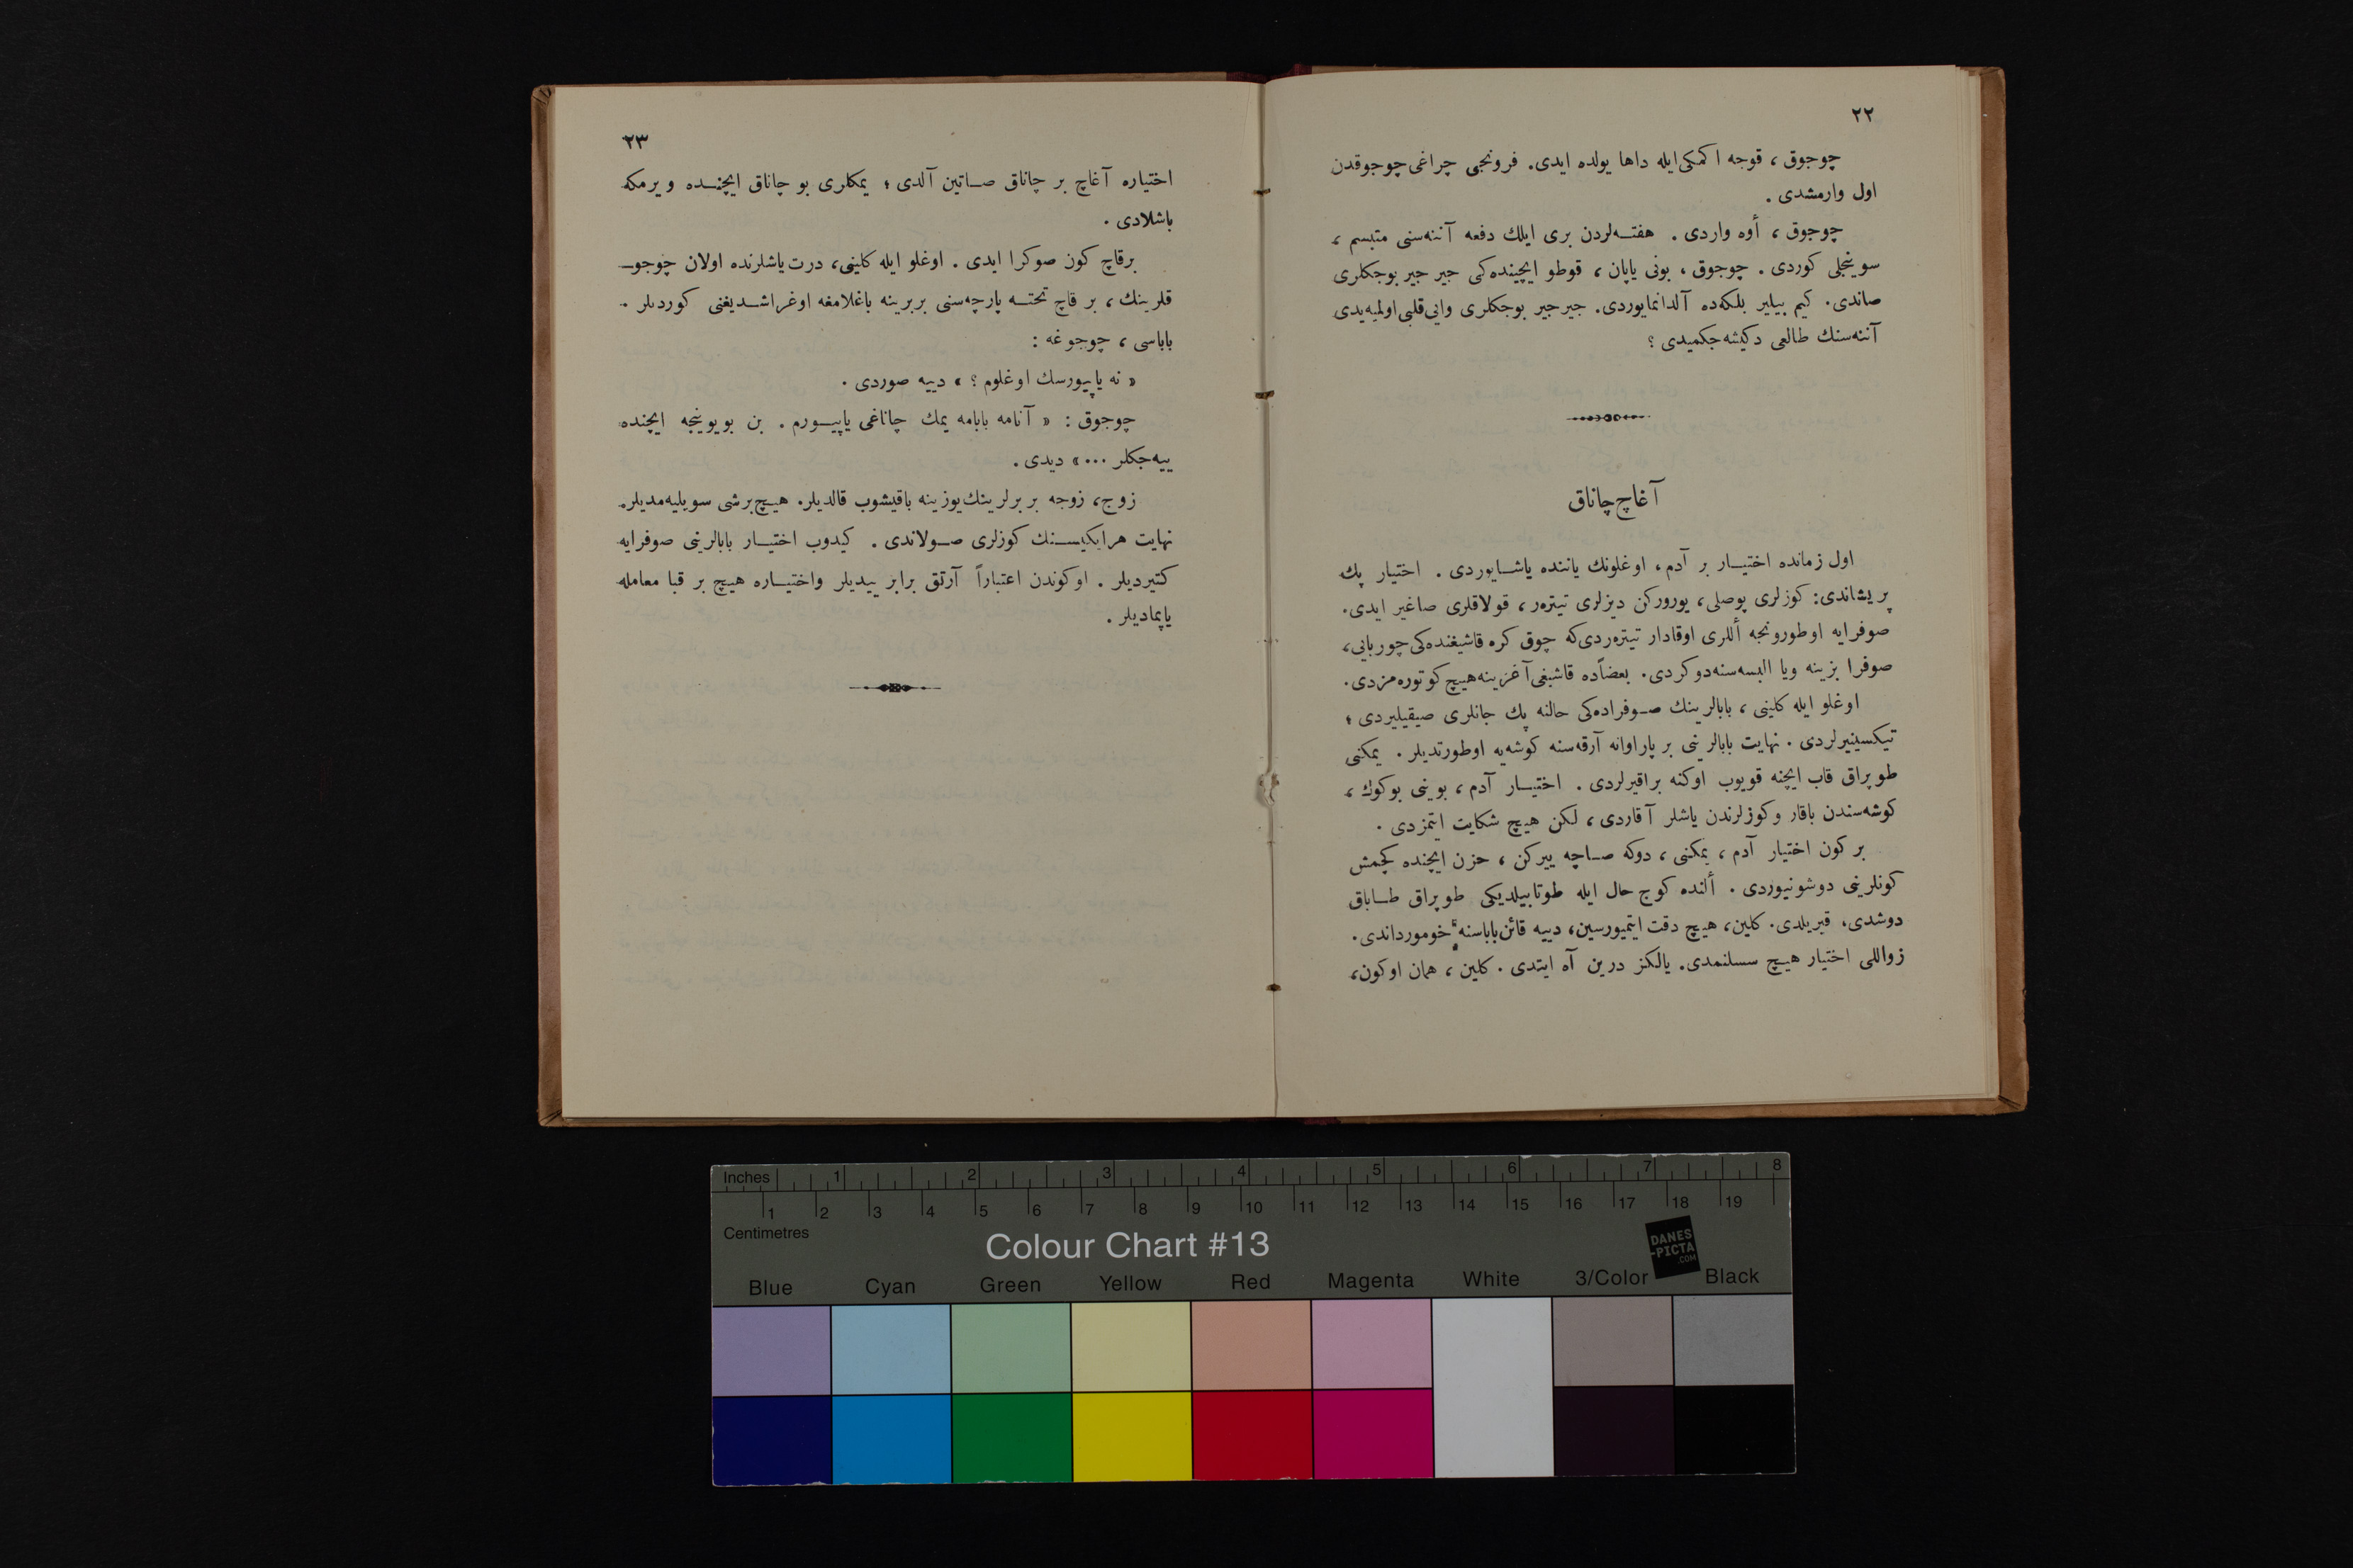 ٢٢
چوجوق ، قوجه اكمكی‌ایله داها یولده ایدی. فرونجی چراغی چوجوقدن
اول وارمشدی .
چوجوق ، أوه واردی . هفتـه‌لردن بری ایلك دفعه آننه‌سنی متبسم ،
سوینجلی كوردی . چوجوق ، بونی یاپان ، قوطو ایچینده‌كی جیر جیر بوجكلری
صاندی. كیم بیلیر بلكه‌ده آلدانمایوردی. جیرجیر بوجكلری وایی‌قلبی‌اولمیه‌یدی
آننه‌سنك طالعی دكیشه‌جكمیدی ؟
آغاچ چاناق
اول زمانده اختیـار بر آدم ، اوغلونك یاننده یاشـایوردی . اختیار پك
پریشاندی: كوزلری پوصلی ، یوروركن دیزلری تیتره‌ر ، قولاقلری صاغیر ایدی.
صوفرایه اوطورونجه أللری اوقادار تیتره‌ردی‌كه چوق كره قاشیغنده‌كی چوربایی ،
صوفرا بزینه ویا البسه‌سنه‌دوكردی. بعضاًده قاشیغی‌آغزینه‌هیچ كوتوره‌مزدی.
اوغلو ایله كلینی ، بابالرینك صـوفراده‌كی حالنه پك جانلری صیقیلیردی ؛
تیكسینیرلردی . نهایت بابالرینی بر پاراوانه آرقه‌سنه كوشه‌یه اوطورتدیلر . یمكنی
طوپراق قاب ایچنه قویوب اوكنه براقیرلردی . اختیـار آدم ، بوینی بوكوك ،
كوشه‌سندن باقار وكوزلرندن یاشلر آقاردی ، لكن هیچ شكایت ایتمزدی .
بر كون اختیار آدم ، یمكنی ، دوكه صـاچه ییركن ، حزن ایچنده كچمش
كونلرینی دوشونیوردی . ألنده كوچ حال ایله طوتابیلدیكی طوپراق طـاباق
دوشدی، قیریلدی. كلین، هیچ دقت ایتمیورسین، دییه قائن‌باباسنه خومورداندی.
زواللی اختیار هیـچ سسلنمدی. یالكز درین آه ایتدی . كلین ، همان اوكون،
٢٣
اختیاره آغاچ بر چاناق صـاتین آلدی ؛ یمكلری بو چاناق ایچنـده ویرمكه
باشلادی .
برقاچ كون صوكرا ایدی . اوغلو ایله كلینی، درت‌یاشلرنده اولان چوجو-
قلرینك ، بر قاچ تخته پارچه‌سنی بربرینه باغلامغه اوغراشـدیغنی كوردیلر .
باباسی ، چوجوغه :
« نه یاپیورسك اوغلوم ؟ » دییه صوردی .
چوجوق : « آنامه بابامه یمك چاناغی یاپیـورم . بن بویوینجه ایچنده
ییه‌جكلر ... » دیدی .
زوج، زوجه بر برلرینك‌یوزینه باقیشوب قالدیلر. هیچ‌برشی سویلیه‌مدیلر.
نهایت هرایكیسـنك كوزلری صـولاندی . كیدوب اختیـار بابالرینی صوفرایه
كتیردیلر . اوكوندن اعتباراً آرتق برابر ییدیلر واختیـاره هیـچ بر قبا معامله
یاپمادیلر .
Inches 1 2 3 4 5 6 7 8
1 2 3 4 5 6 7 8 9 10 11 12 13 14 15 16 17 18 19
Centimetres
Colour Chart #13
DANES
-PICTA
.COM
Blue Cyan Green Yellow Red Magenta White 3/Color Black